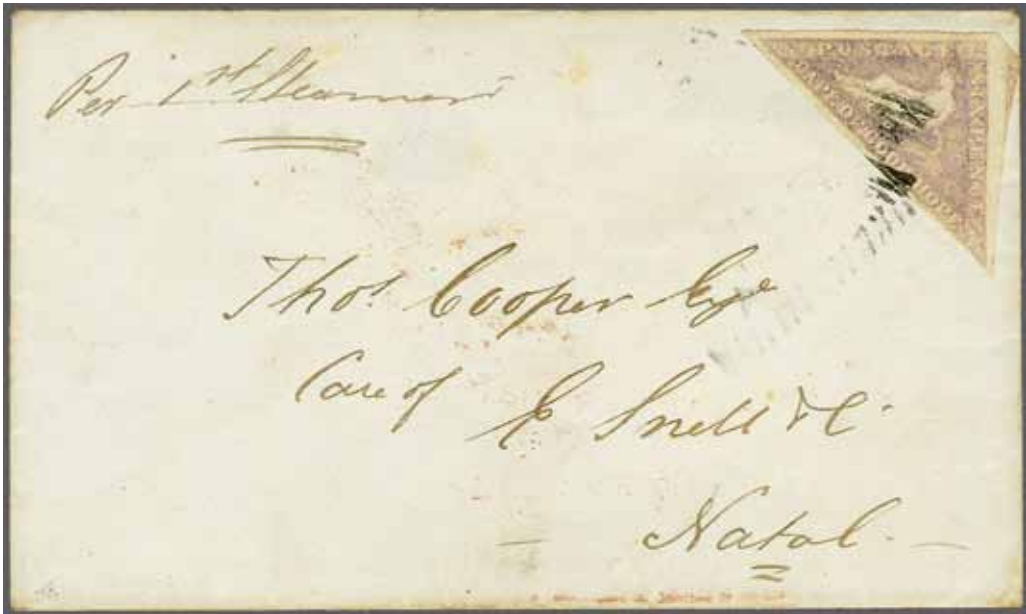 Per 1st Steamer
POSTAGE
CAPE OF GOOD HOPE
SIX PENCE
Thos. Cooper Esqe
Care of
E Snell & Co
Natal